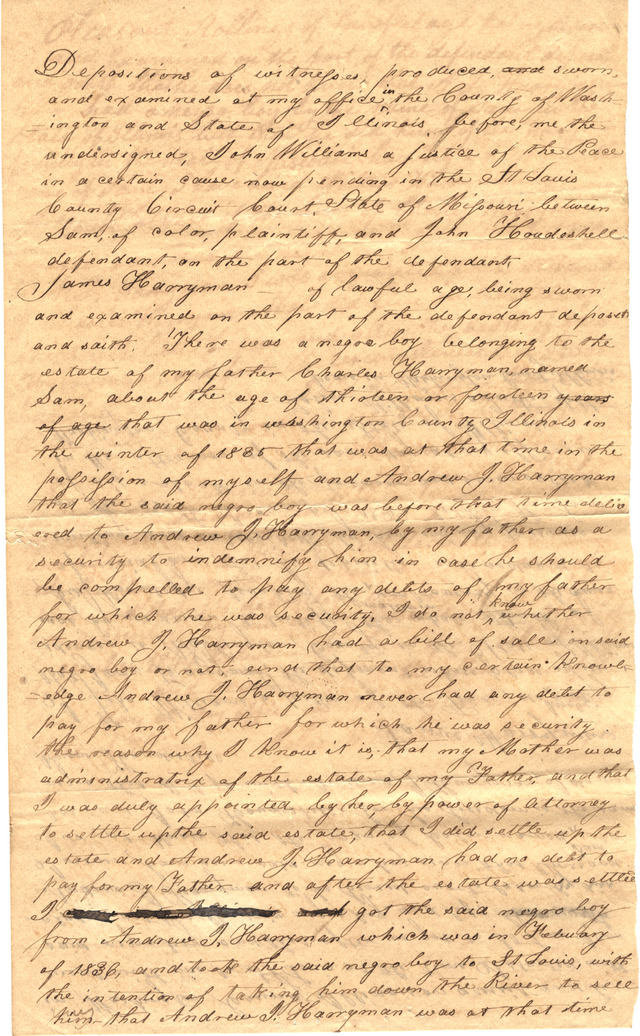 Depositions of witnesses, produced, and sworn,
and examined at my office in the County of Wash-
-ington and State of Illinois before, me the
undersigned, John Williams a Justice of the Peace
in a certain cause now pending in the St Louis
County Circuit Court, State of Missouri between
Sam, of color, plaintiff, and John Houdeshell
defendant, on the part of the defendant,
James Harryman – of lawful age, being sworn
and examined on the part of the defendant deposeth
and saith. There was a negro boy belonging to the
estate of my father Charles Harryman, named
Sam, about the age of thirteen or fourteen years
of age that was in Washington County Illinois in
the winter of 1835 that was at that time in the
possission of myself and Andrew J. Harryman
that the said negro boy was before that time deliv
ered to Andrew J. Harryman, by my father as a
security to indemnify him in case he should
be compelled to pay any debts of my father
for which he was security, I do not know whither
Andrew J. Harryman had a bill of sale in said
negro boy or not, and that to my certain knowl-
-edge Andrew J. Harryman never had any debt to
pay for my father for which he was security
the reason why I know it is, that my Mother was
administratrix of the estate of my Father, and that
I was duly appointed by her, by power of attorney
to settle up the said estate, that I did settle up the
estate and Andrew J. Harryman had no debt to
pay for my Father and after the estate was settled
I and got the said negro boy
from Andrew J. Harryman which was in Febuary
of 1836, and took the said negro boy to St Louis, with
the intention of taking him down the River to sell
him that Andrew J. Harryman was at that time